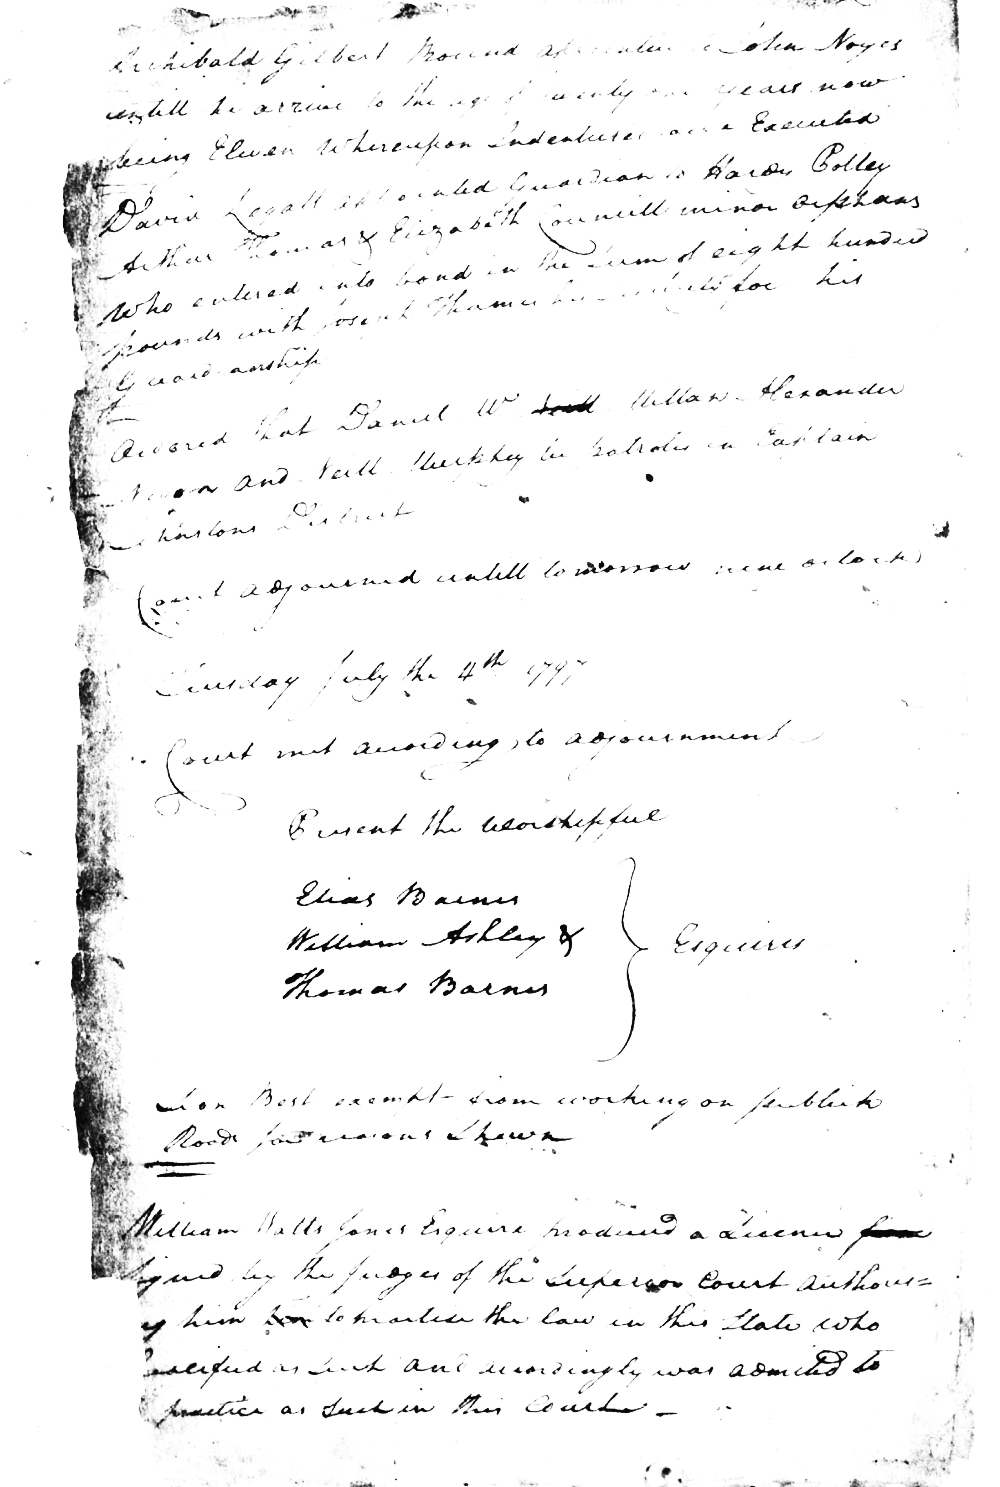 Archibald Gilbert Bound apprentice to John Noyes
untill he arrive to the age of twenty one years now
being Eleven Whereupon Indentures were Executed
David Legatt appointed Guardian to Hardy Polley
Arthur Thomas & Elizabeth Councill minor orphans
Who entered into bond in the sum of eight hundred
pounds with Joseph Thames his for his
Guardianship
Ordered that Daniel Mc Millan Alexander
and Neill Murphey be patrolers in Captain
District
Court adjourned untill tomorrow nine oclock
Tuesday July the 4th 1797
Court met according to adjournment
Present the Worshipfull
Elias Barnes
William Ashley &
Thomas Barnes
Esquires
Best exempt from working on publick
Roads for reasons Shewn
William Watts Jones Esquire produced a Licence
Signed by the Judges of the Superior Court Authoris=
ing him to practise the law in this State who
qualifyed as Such and accordingly was admited to
practice as Such in this Court